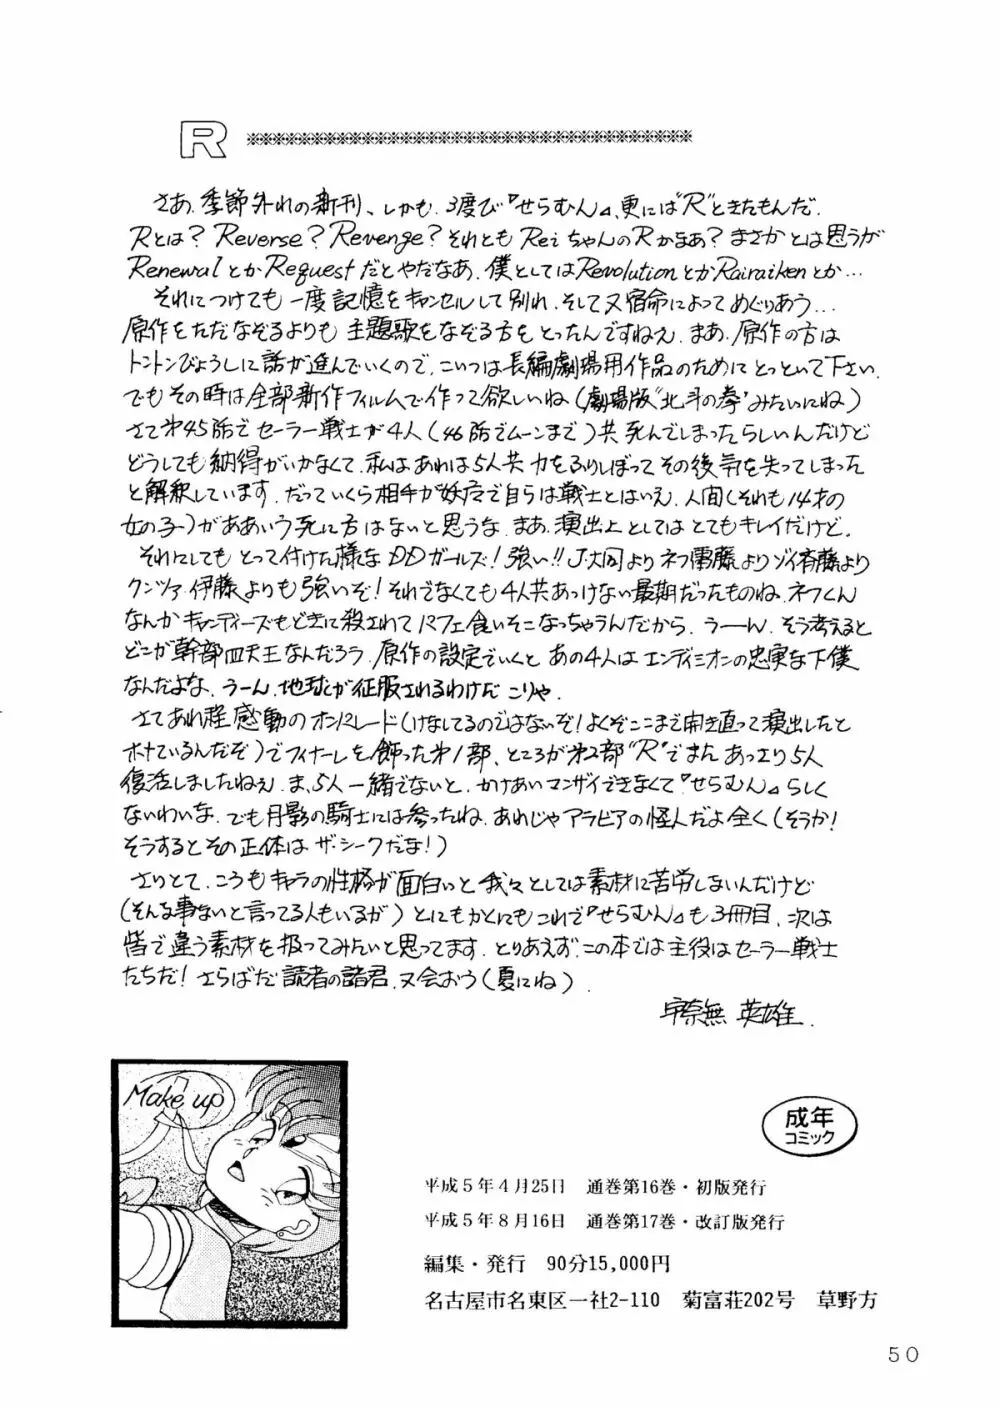 R
さあ、季節外れの新刊、しかも、3度び『せらむん』、更には“R”ときたもんだ.
Rとは？Reverse？Revenge？それともReiちゃんのRかなあ？まさかとは思うが
RenewalとかRequestだとやだなあ、僕としてはRevolutionとかRairaikenとか…
それにつけても一度記憶をキャンセルして別れ、そして又宿命によってめぐりあう…
原作をただなぞるよりも主題歌をなぞる方をとったんですねえ.まあ、原作の方は
トントンびょうしに話が進んでいくので、こいつは長編劇場用作品のためにとっといて下さい.
でもその時は全部新作フィルムで作って欲しいね（劇場版“北斗の拳”みたいにね）
さて第45話でセーラー戦士が4人（46話でムーンまで）共死んでしまったらしいんだけど
どうしても納得がいかなくて、私はあれは5人共力をふりしぼってその後気を失ってしまった
と解釈しています.だっていくら相手が妖広で自らは戦士とはいえ、人間（それも14才の
女の子）がああいう死に方はないと思うな.まあ、演出上としてはとてもキレイだけど.
それにしてもとって付けた様なDDガールズ！強い!!J・大同よりネフ雷藤よりゾイ斉藤より
クンツァ伊藤よりも強いぞ！それでなくても4人共あっけない最期だったものね.ネフくん
なんかキャンディーズもどきに殺されてパフェ食いそこなっちゃうんだから.うーん.そう考えると
どこが幹部四天王なんだろう.原作の設定でいくとあの4人はエンディミオンの忠実な下僕
なんだよな.うーん.地球が征服されるわけだこりゃ.
さてあれ程感動のオンパレード（けなしてるのではないぞ！よくぞここまで開き直って演出したと
ホメているんだぞ）でフィナーレを飾った第1部、ところが第2部“R”でまたあっさり5人
復活しましたねえ.ま、5人一緒でないと、かけあいマンザイできなくて『せらむん』らしく
ないわいな.でも月影の騎士には参ったね.あれじゃアラビアの怪人だよ全く（そうか！
そうするとその正体はザ・シークだな！）
さりとて、こうもキャラの性格が面白いと我々としては素材に苦労しないんだけど
（そんな事ないと言ってる人もいるが）とにもかくにもこれで『せらむん』も3冊目、次は
皆で違う素材を扱ってみたいと思ってます.とりあえずこの本では主役はセーラー戦士
たちだ！さらばだ読者の諸君、又会おう（夏にね）.
宇奈無 英雄.
Make up
成年
コミック
平成5年4月25日　通巻第16巻・初版発行
平成5年8月16日　通巻第17巻・改訂版発行
編集・発行　90分15,000円
名古屋市名東区一社2-110　菊富荘202号　草野方
50